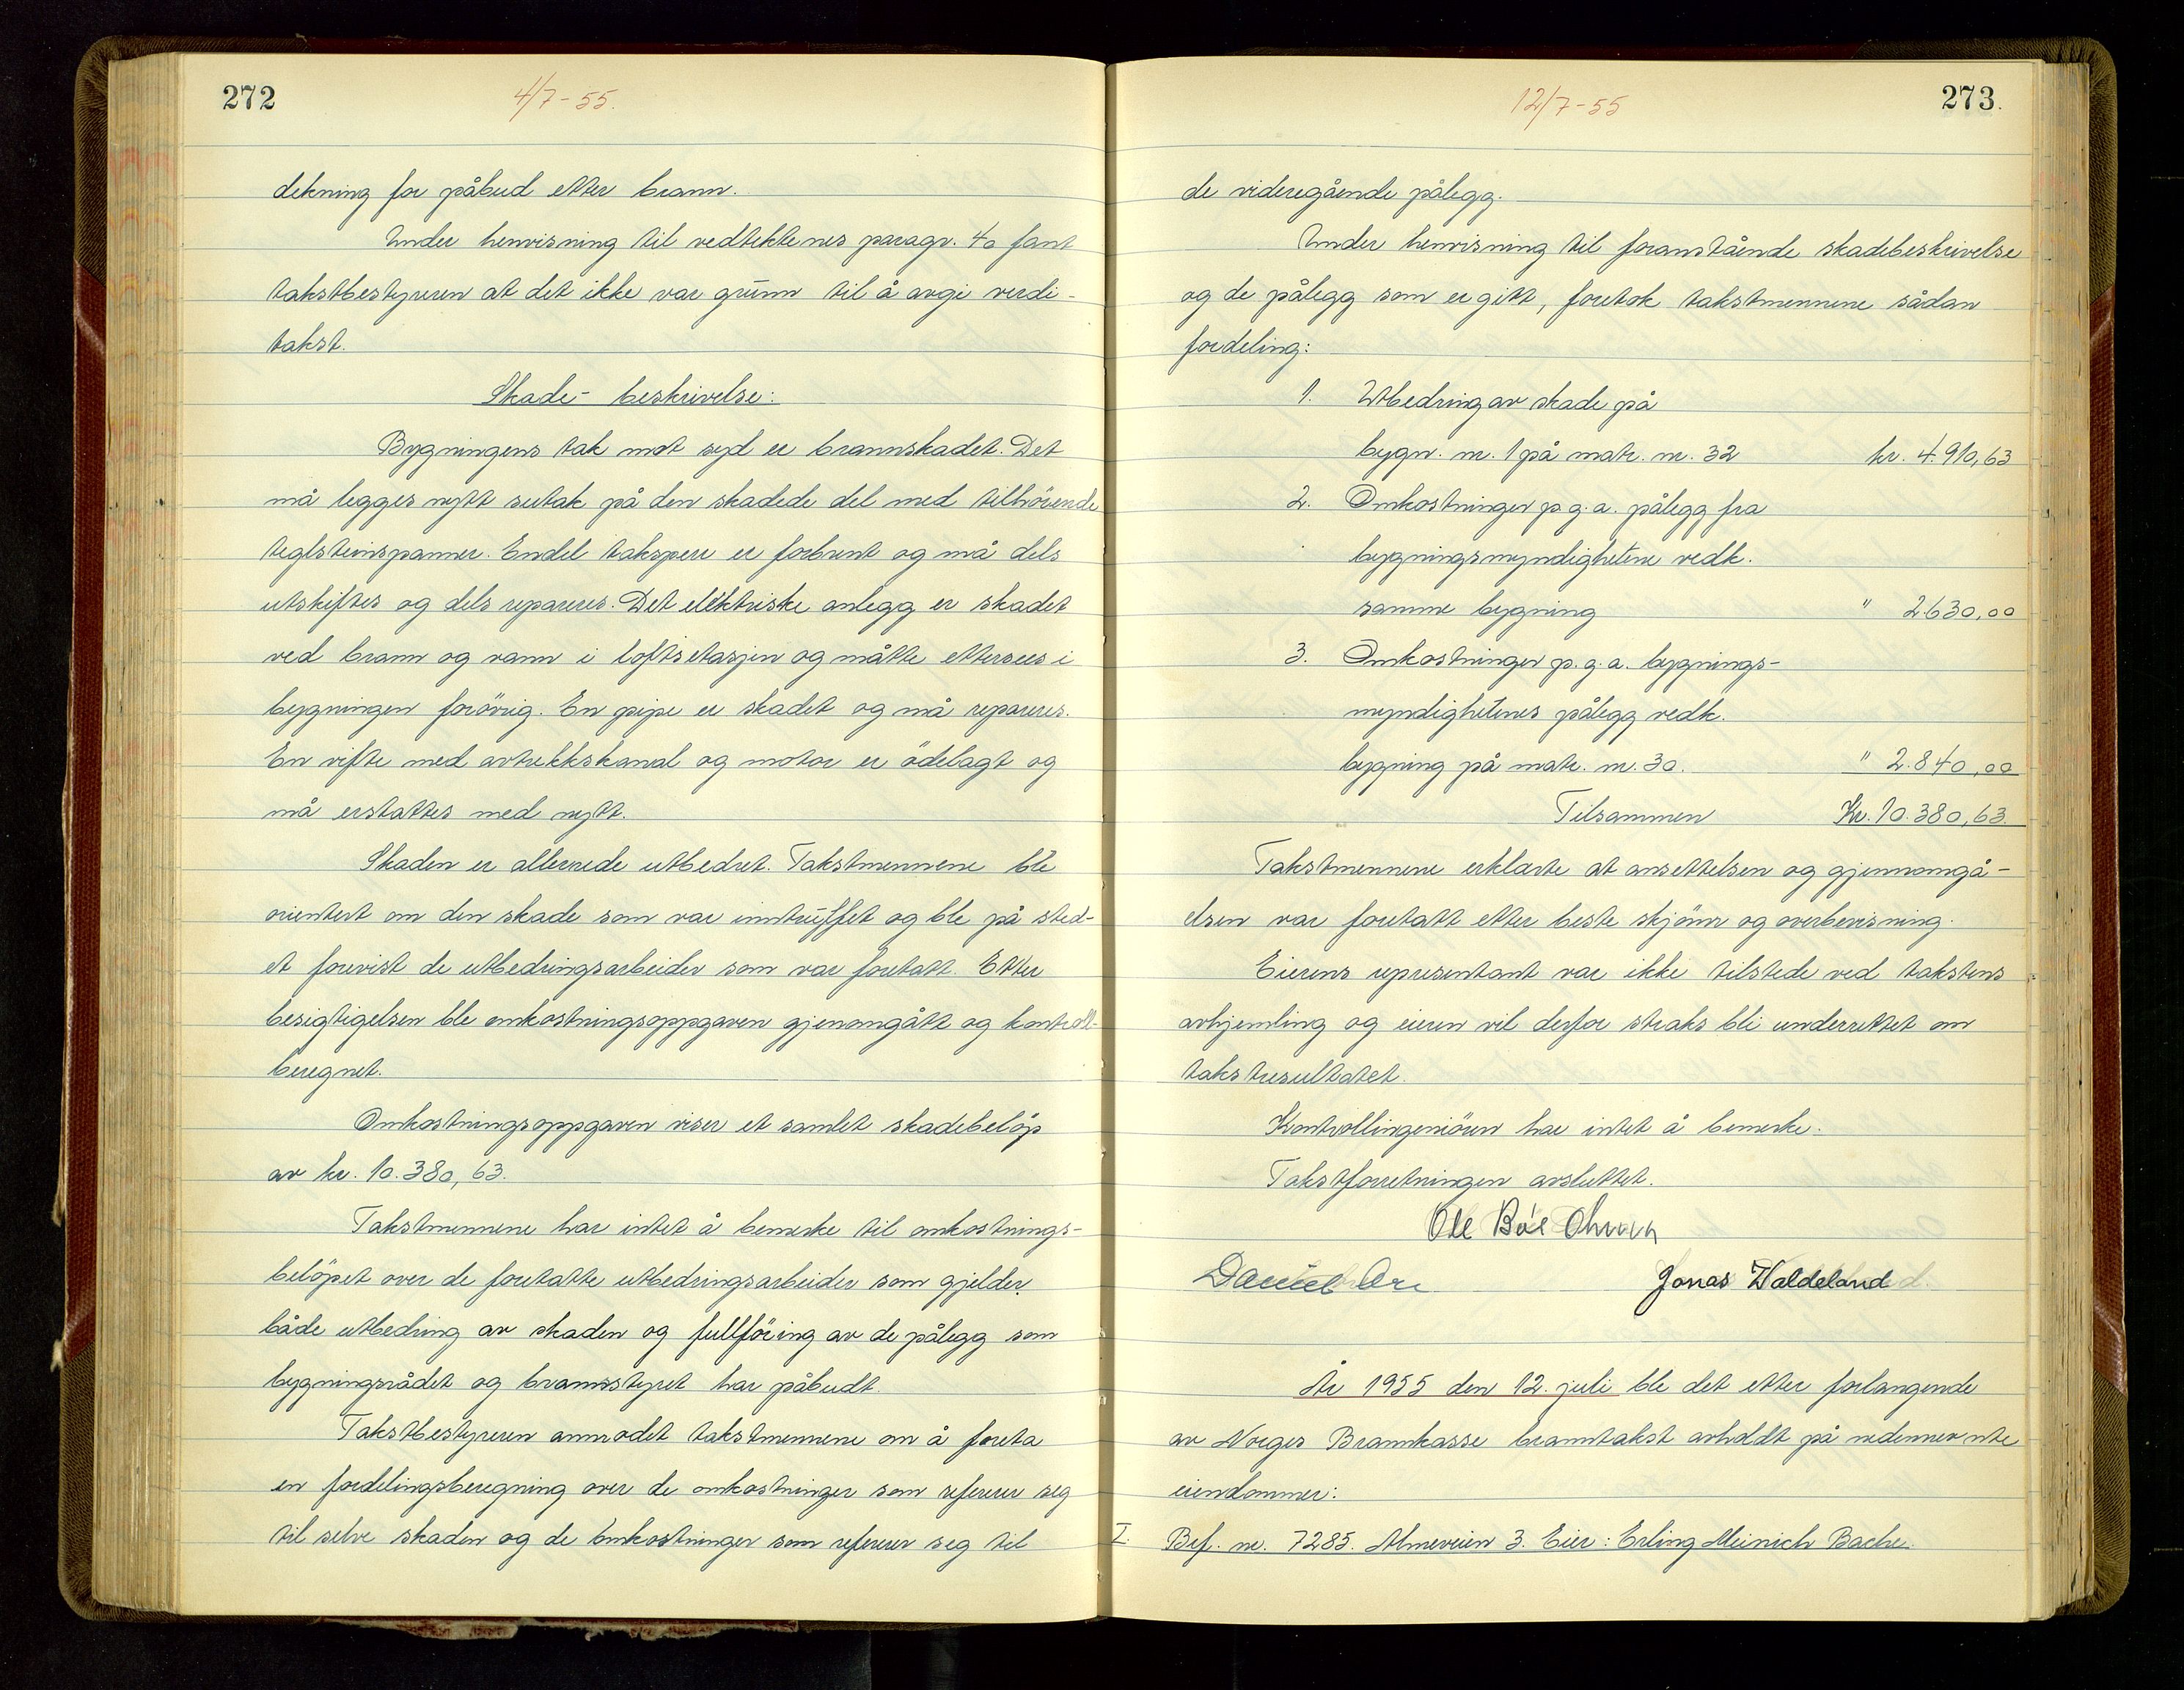 272
4/7-55.
dekning for påbud etter brann.
Under henvisning til vedtektenes paragr. 40 fant
takstbestyreren at det ikke var grunn til å avgi verdi-
takst.
Skade- beskrivelse:
Bygningens tak mot syd er brannskadet. Det
må legges nytt sutak på den skadede del med tilhörende
teglsteinspanner. Endel taksperr er forbrent og må dels
utskiftes og dels repareres. Det elektriske anlegg er skadet
ved brann og vann i loftsetasjen og måtte ettersees i
bygningen forövrig. En pipe er skadet og må repareres.
En vifte med avtrekkskanal og motor er ödelagt og
må erstattes med nytt.
Skaden er allerede utbedret. Takstmennene ble
orientert om den skade som var inntruffet og ble på sted-
et forevist de utbedringsarbeider som var foretatt. Etter
besigtigelsen ble omkostningsoppgaven gjenomgått og kontroll-
beregnet.
Omkostningsoppgaven viser et samlet skadebelöp
av kr. 10.380,63.
Takstmennene har intet å bemerke til omkostnings-
belöpet over de foretatte utbedringsarbeider som gjelder
både utbedring av skaden og fullföring av de pålegg som
bygningsrådet og brannstyret har påbudt.
Takstbestyreren anmodet takstmennene om å foreta
en fordelingsberegning over de omkostninger som referer seg
til selve skaden og de omkostninger som referer seg til
273.
12/7-55
de videregående pålegg.
Under henvisning til foranstående skadebeskrivelse
og de pålegg som er gitt, foretok takstmennene sådan
fordeling:
1. Utbedring av skade på
bygn. nr. 1 på matr. nr. 32 kr. 4.910,63
2. Omkostninger p.g.a. pålegg fra
bygningsmyndighetene vedk.
samme bygning " 2.630,00
3. Omkostninger p.g.a. bygnings-
myndighetenes pålegg vedk.
bygning på matr. nr. 30. " 2.840,00
Tilsammen Kr. 10.380,63.
Takstmennene erklærte at ansettelsen og gjennomgå-
elsen var foretatt etter beste skjönn og overbevisning.
Eierens representant var ikke tilstede ved takstens
avhjemling og eieren vil derfor straks bli underrettet om
takstresultatet.
Kontrollingeniören har intet å bemerke.
Takstforretningen avsluttet.
Daniel
Jonas Waldeland
År 1955 den 12. juli ble det etter forlangende
av Norges Brannkasse branntakst avholdt på nedennevnte
eiendommer:
I. Bef. nr. 7285. Almeveien 3. Eier: Erling Meinich Bache.